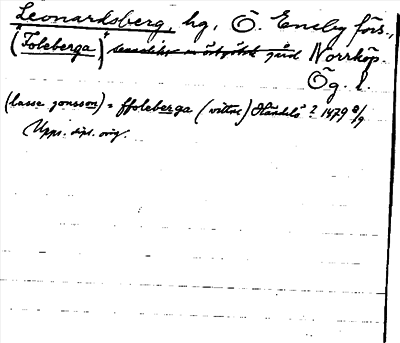 Leonardsberg, hg, Ö. Eneby förs.,
("Foleberga") Norrköp.
Ög. l.
(lasse jonsson) = ffoleberga (wittne) Händelö ? 1479 8/9
Upps. dipl. orig.